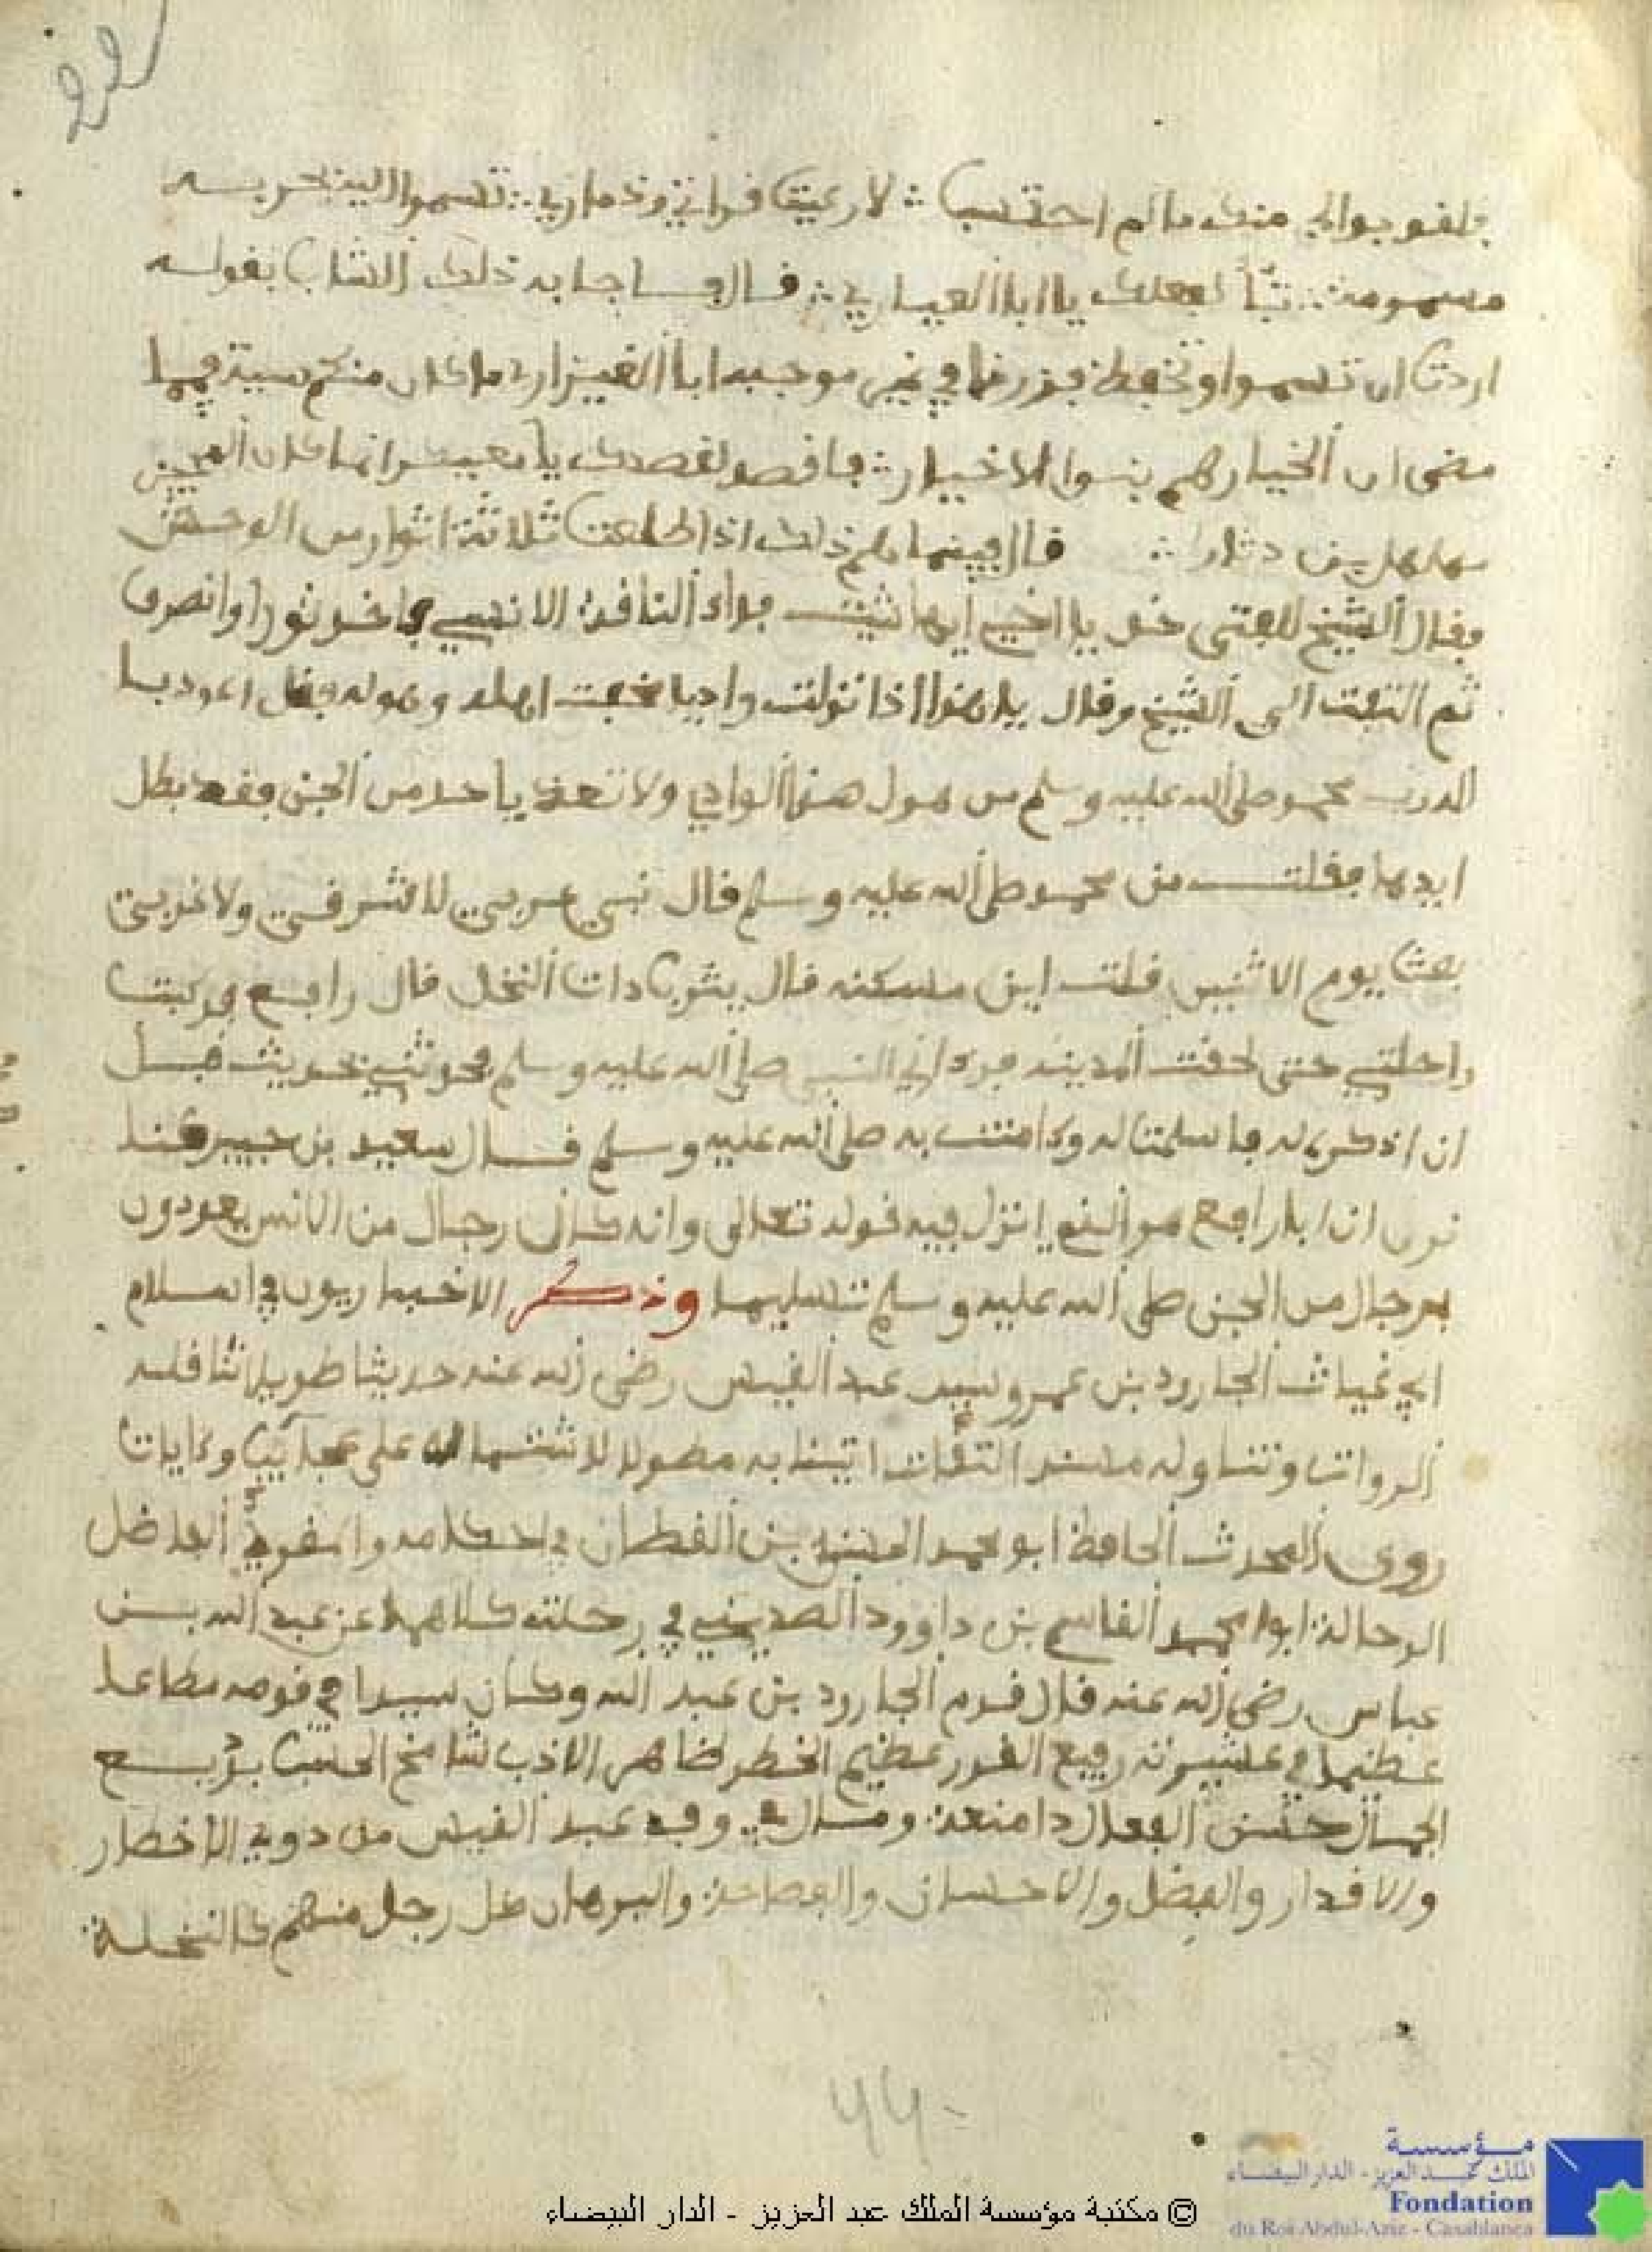 22
فلقد بدا لي منك ما لم احتسب ∴ لا رعيت قرابتي وذماري ∴ تسموا اليه بحربه
مسمومة ∴ تبا لفعلك يا ابا العيزاري ∴ قال فاجابه ذلك الشاب بقوله
اردت ان تسموا وتخفض ذكرنا في غير موجبه ابا العيزار ما كان منكم سيد فيما
مضى ان الخيار هم بنوا الاخيار ∴ فاقصد لقصدك يا معيكر انما كان المجير
مهلهل بن دثار ∴ قال فبينما هم ذلك اذا طلعت ثلاثة اثوار من الوحش
فقال الشيخ للفتى خذ يا اخي ايها شئت فداء لناقة الانسي فاخذ ثورا وانصرف
ثم التفت الى الشيخ وقال يا هذا اذا نزلت واديا فخفت اهله وهوله فقل اعوذ با
لله رب محمد صلى الله عليه وسلم من هول هذا الوادي ولا تعذ باحد من الجن فقد بطل
ايدها فقلت من محمد صلى الله عليه وسلم قال نبي عربي لا شرقي ولا غربي
بعث يوم الاثنين قلت اين مسكنه قال يثرب ذات النخل قال رافع فركبت
راحلتي حتى لحقت المدينة فرءاني النبي صلى الله عليه وسلم فحدثني بحديث قبل
ان اذكره له فاسلمت له وءامنت به صلى الله عليه وسلم قال سعيد بن جبير فكنا
نرى ان ابا رافع هو الذي انزل فيه قوله تعالى وانه كان رجال من الانس يعوذون
برجال من الجن صلى الله عليه وسلم تسليما وذكر الاخباريون في اسلام
ابي غياث الجارود بن عمرو سيد عبد القيس رضي الله عنه حديثا طويلا تناقله
الرواة وتناوله مسند الثقات اتينا به مطولا لاشتماله على عجائب وءايات
روى المحدث الحافظ ابو محمد الحسن بن القطان في احكامه والمقرئ الفاضل
الرحالة ابو محمد القاسم بن داوود الصديني في رحلته كلاهما عن عبد الله بن
عباس رضي الله عنه قال قدم الجارود بن عبد الله وكان سيدا في قومه مطاعا
عظيما في عشيرته رفيع القدر عظيم الخطر ظاهر الادب شامخ الحسب بديع
الجمال حسن الفعال ذا منعة ومال في وفد عبد القيس من ذوي الاخطار
والاقدار والفضل والاحسان والفصاحة والبرهان كل رجل منهم كالنخلة
44
مؤسسة
الملك عبد العزيز - الدار البيضاء
Fondation
du Roi Abdul-Aziz - Casablanca
© مكتبة مؤسسة الملك عبد العزيز - الدار البيضاء